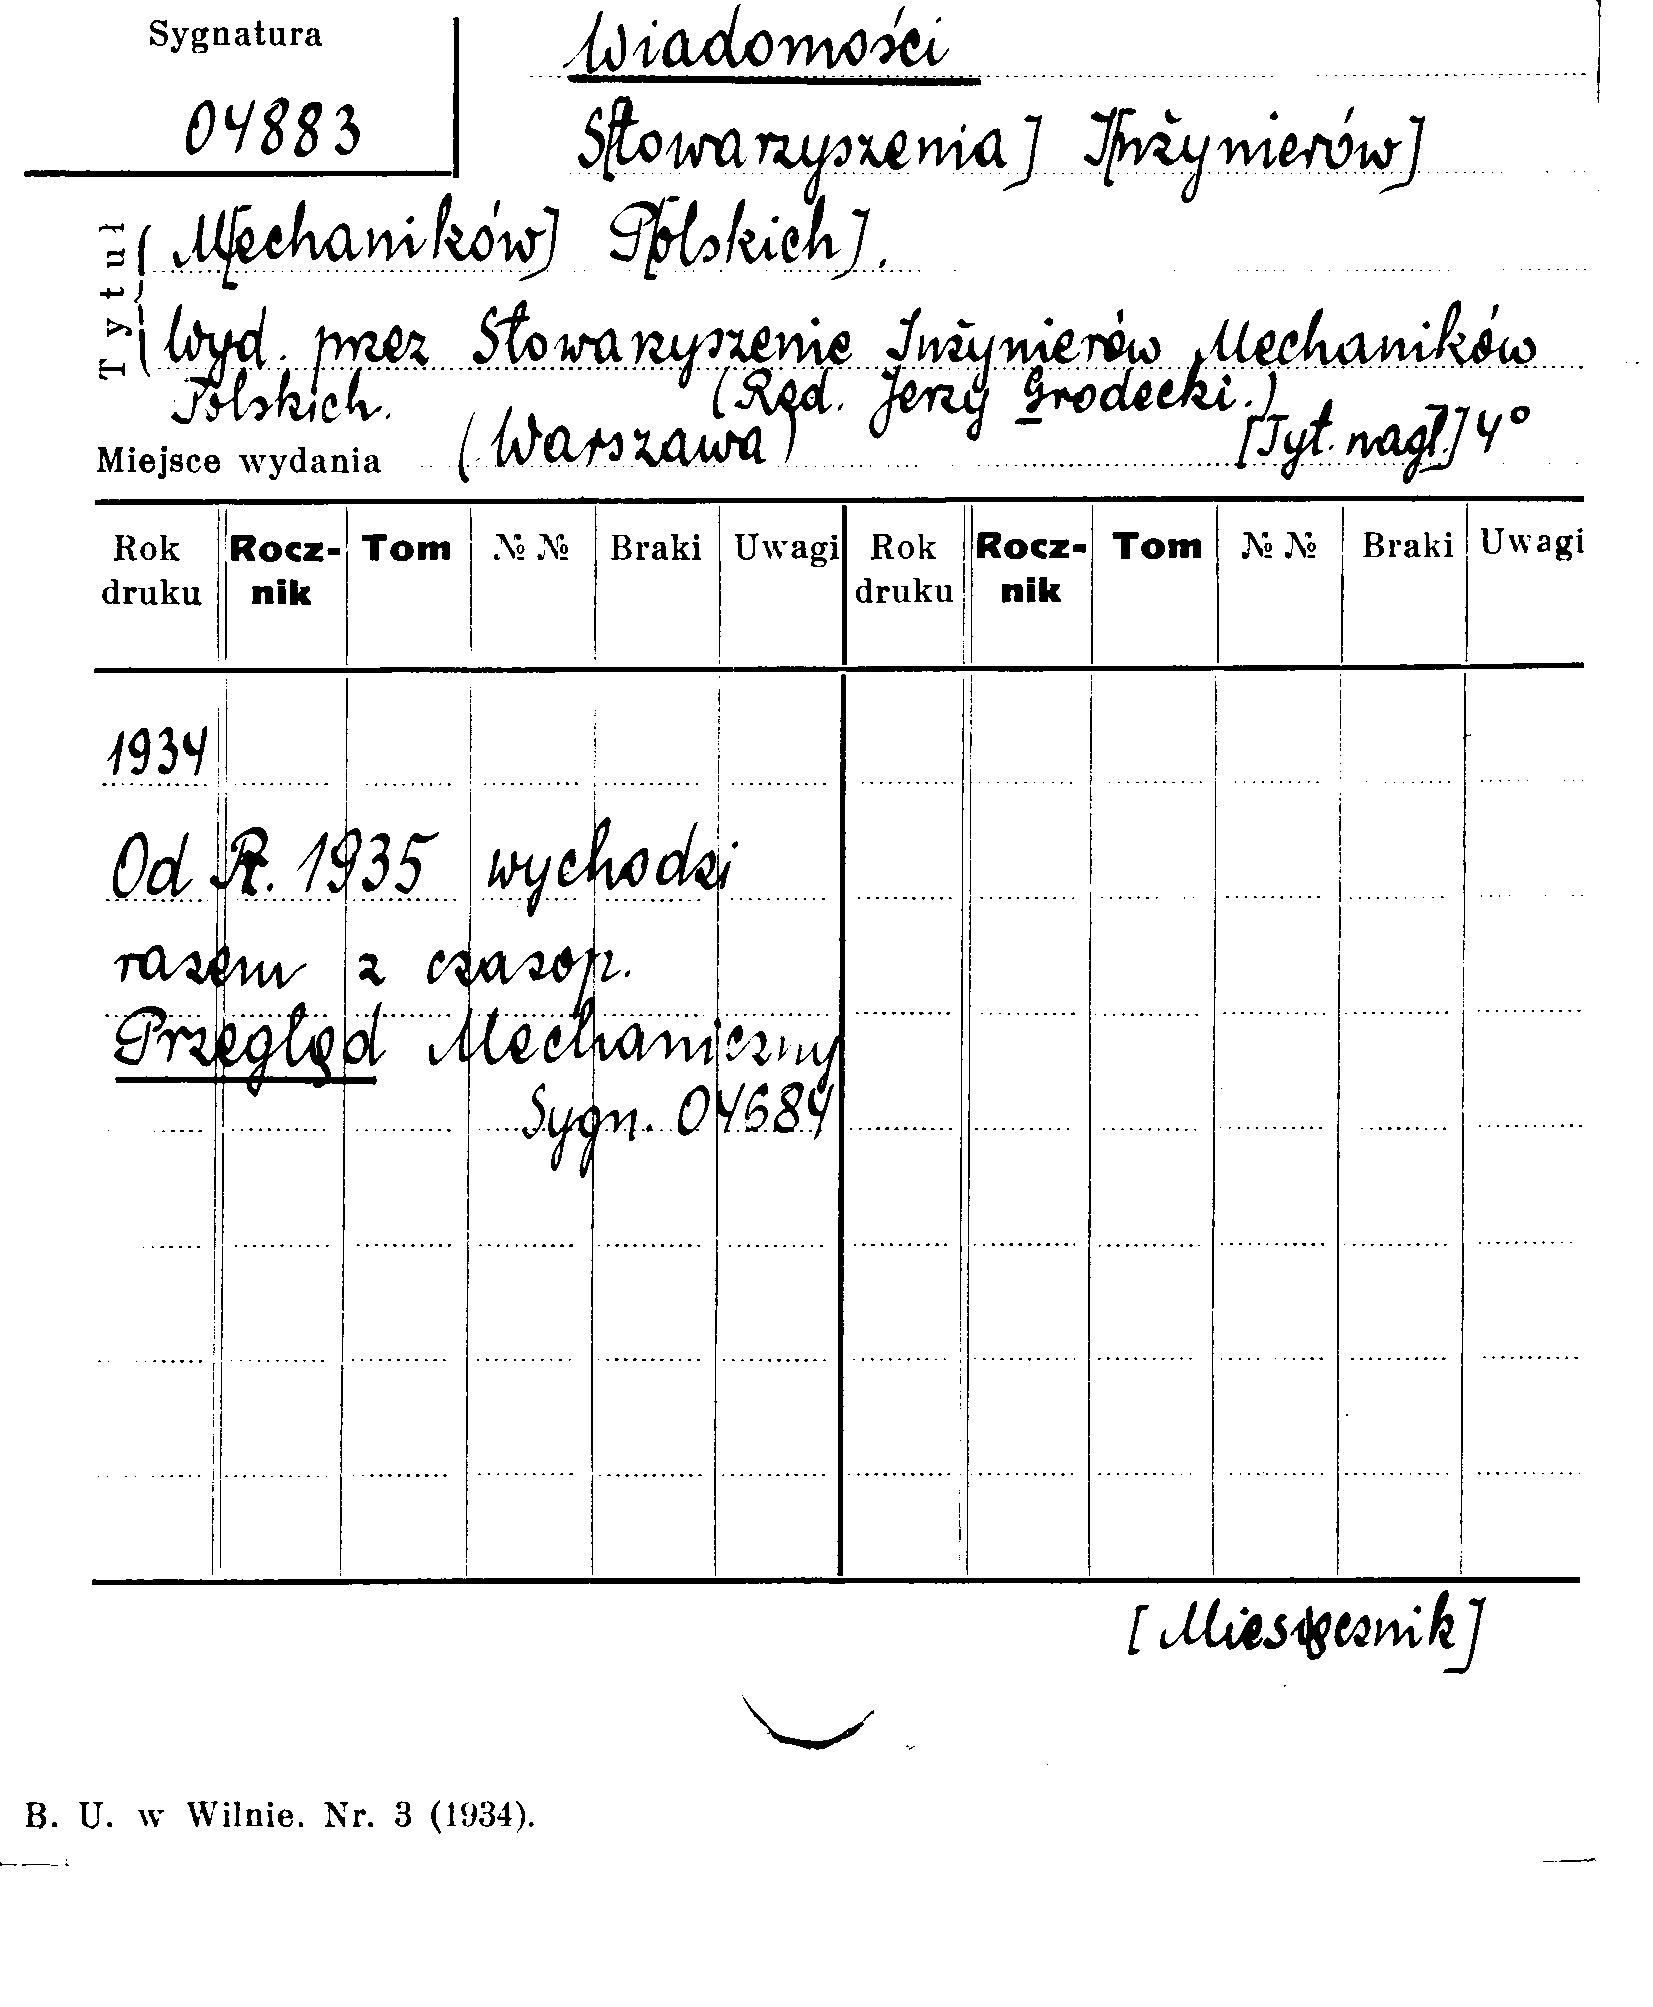 Sygnatura
04883
Wiadomości
S[towarzyszenia] I[nżynierów]
Tytuł
M[echaników] P[olskich].
Wyd. przez Stowarzyszenie Inżynierów Mechaników
Polskich. (Red. Jerzy Grodecki.)
Miejsce wydania (Warszawa) [Tyt. nagł.] 4°
Rok druku Rocz-nik Tom № № Braki Uwagi Rok druku Rocz-nik Tom № № Braki Uwagi
1934
Od R. 1935 wychodzi
razem z czasop.
Przegląd Mechaniczny
Sygn. 04684
[Miesięcznik]
B. U. w Wilnie. Nr. 3 (1934).